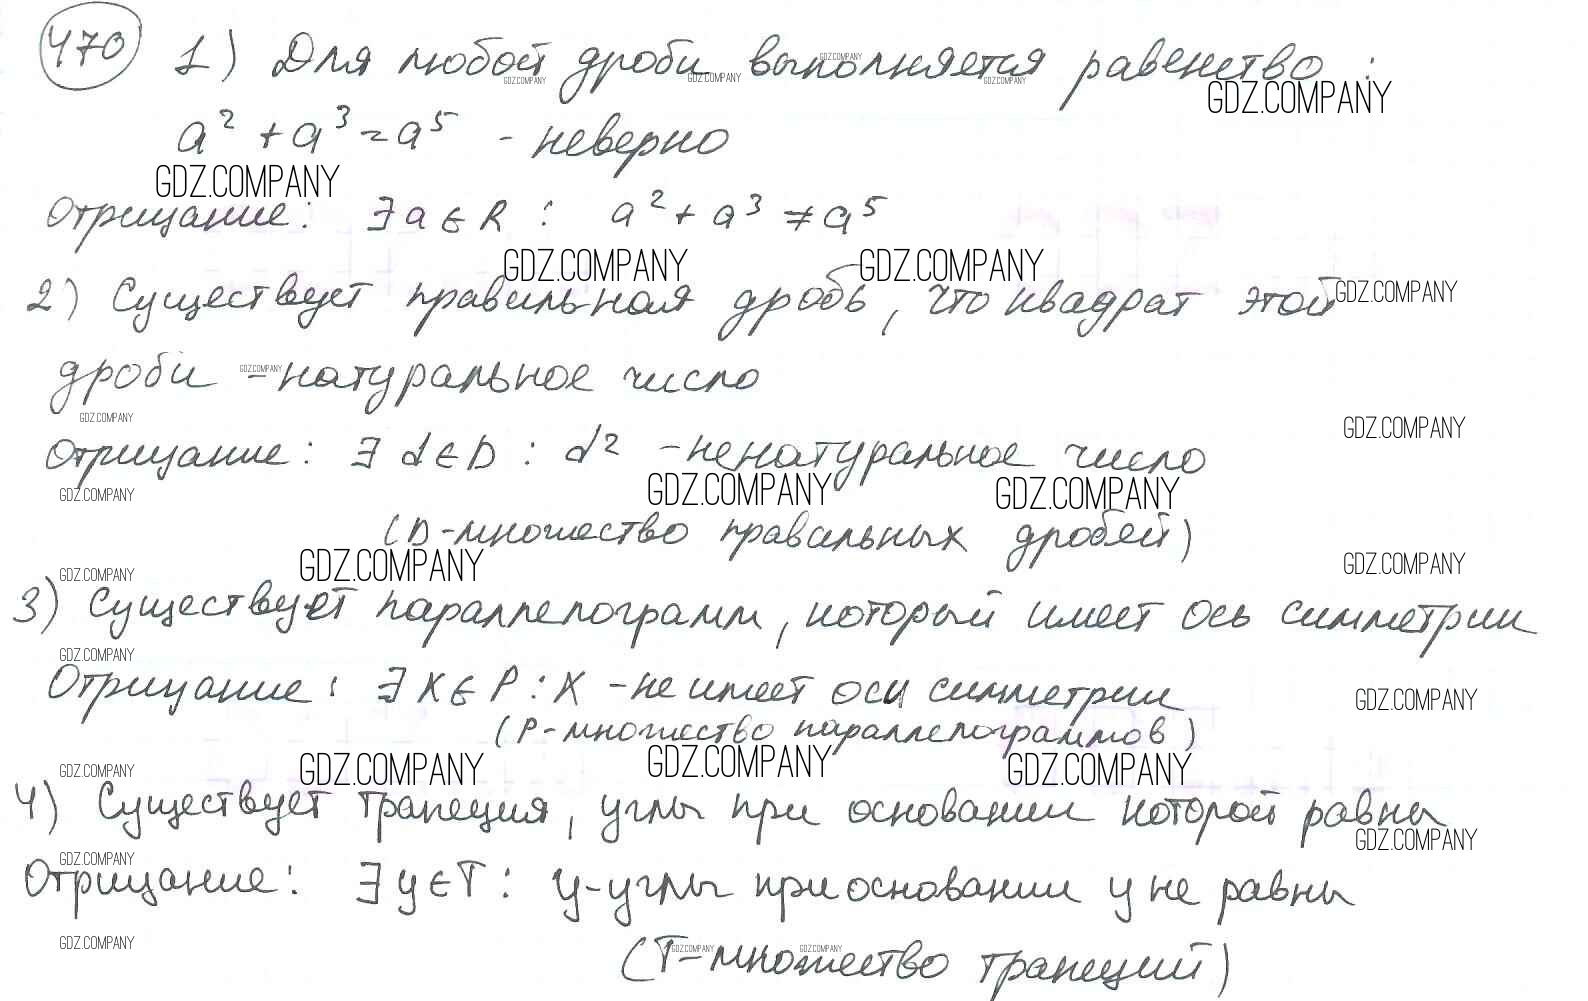 470 1) Для любой дроби выполняется равенство :
GDZ.COMPANY GDZ.COMPANY GDZ.COMPANY GDZ.COMPANY
GDZ.COMPANY
a² + a³ = a⁵ - неверно
GDZ.COMPANY
Отрицание: ∃ a ∈ R : a² + a³ ≠ a⁵
GDZ.COMPANY GDZ.COMPANY
2) Существует правильная дробь, что квадрат этой
GDZ.COMPANY
дроби - натуральное число
GDZ.COMPANY
GDZ.COMPANY GDZ.COMPANY
Отрицание: ∃ d ∈ D : d² - ненатуральное число
GDZ.COMPANY GDZ.COMPANY GDZ.COMPANY
(D - множество правильных дробей)
GDZ.COMPANY GDZ.COMPANY GDZ.COMPANY
3) Существует параллелограмм, который имеет ось симметрии
GDZ.COMPANY
Отрицание: ∃ X ∈ P : X - не имеет оси симметрии
GDZ.COMPANY
(P - множество параллелограммов)
GDZ.COMPANY GDZ.COMPANY GDZ.COMPANY GDZ.COMPANY
4) Существует трапеция, углы при основании которой равны
GDZ.COMPANY
GDZ.COMPANY
Отрицание: ∃ y ∈ T : y - углы при основании y не равны
GDZ.COMPANY GDZ.COMPANY GDZ.COMPANY
(T - множество трапеций)